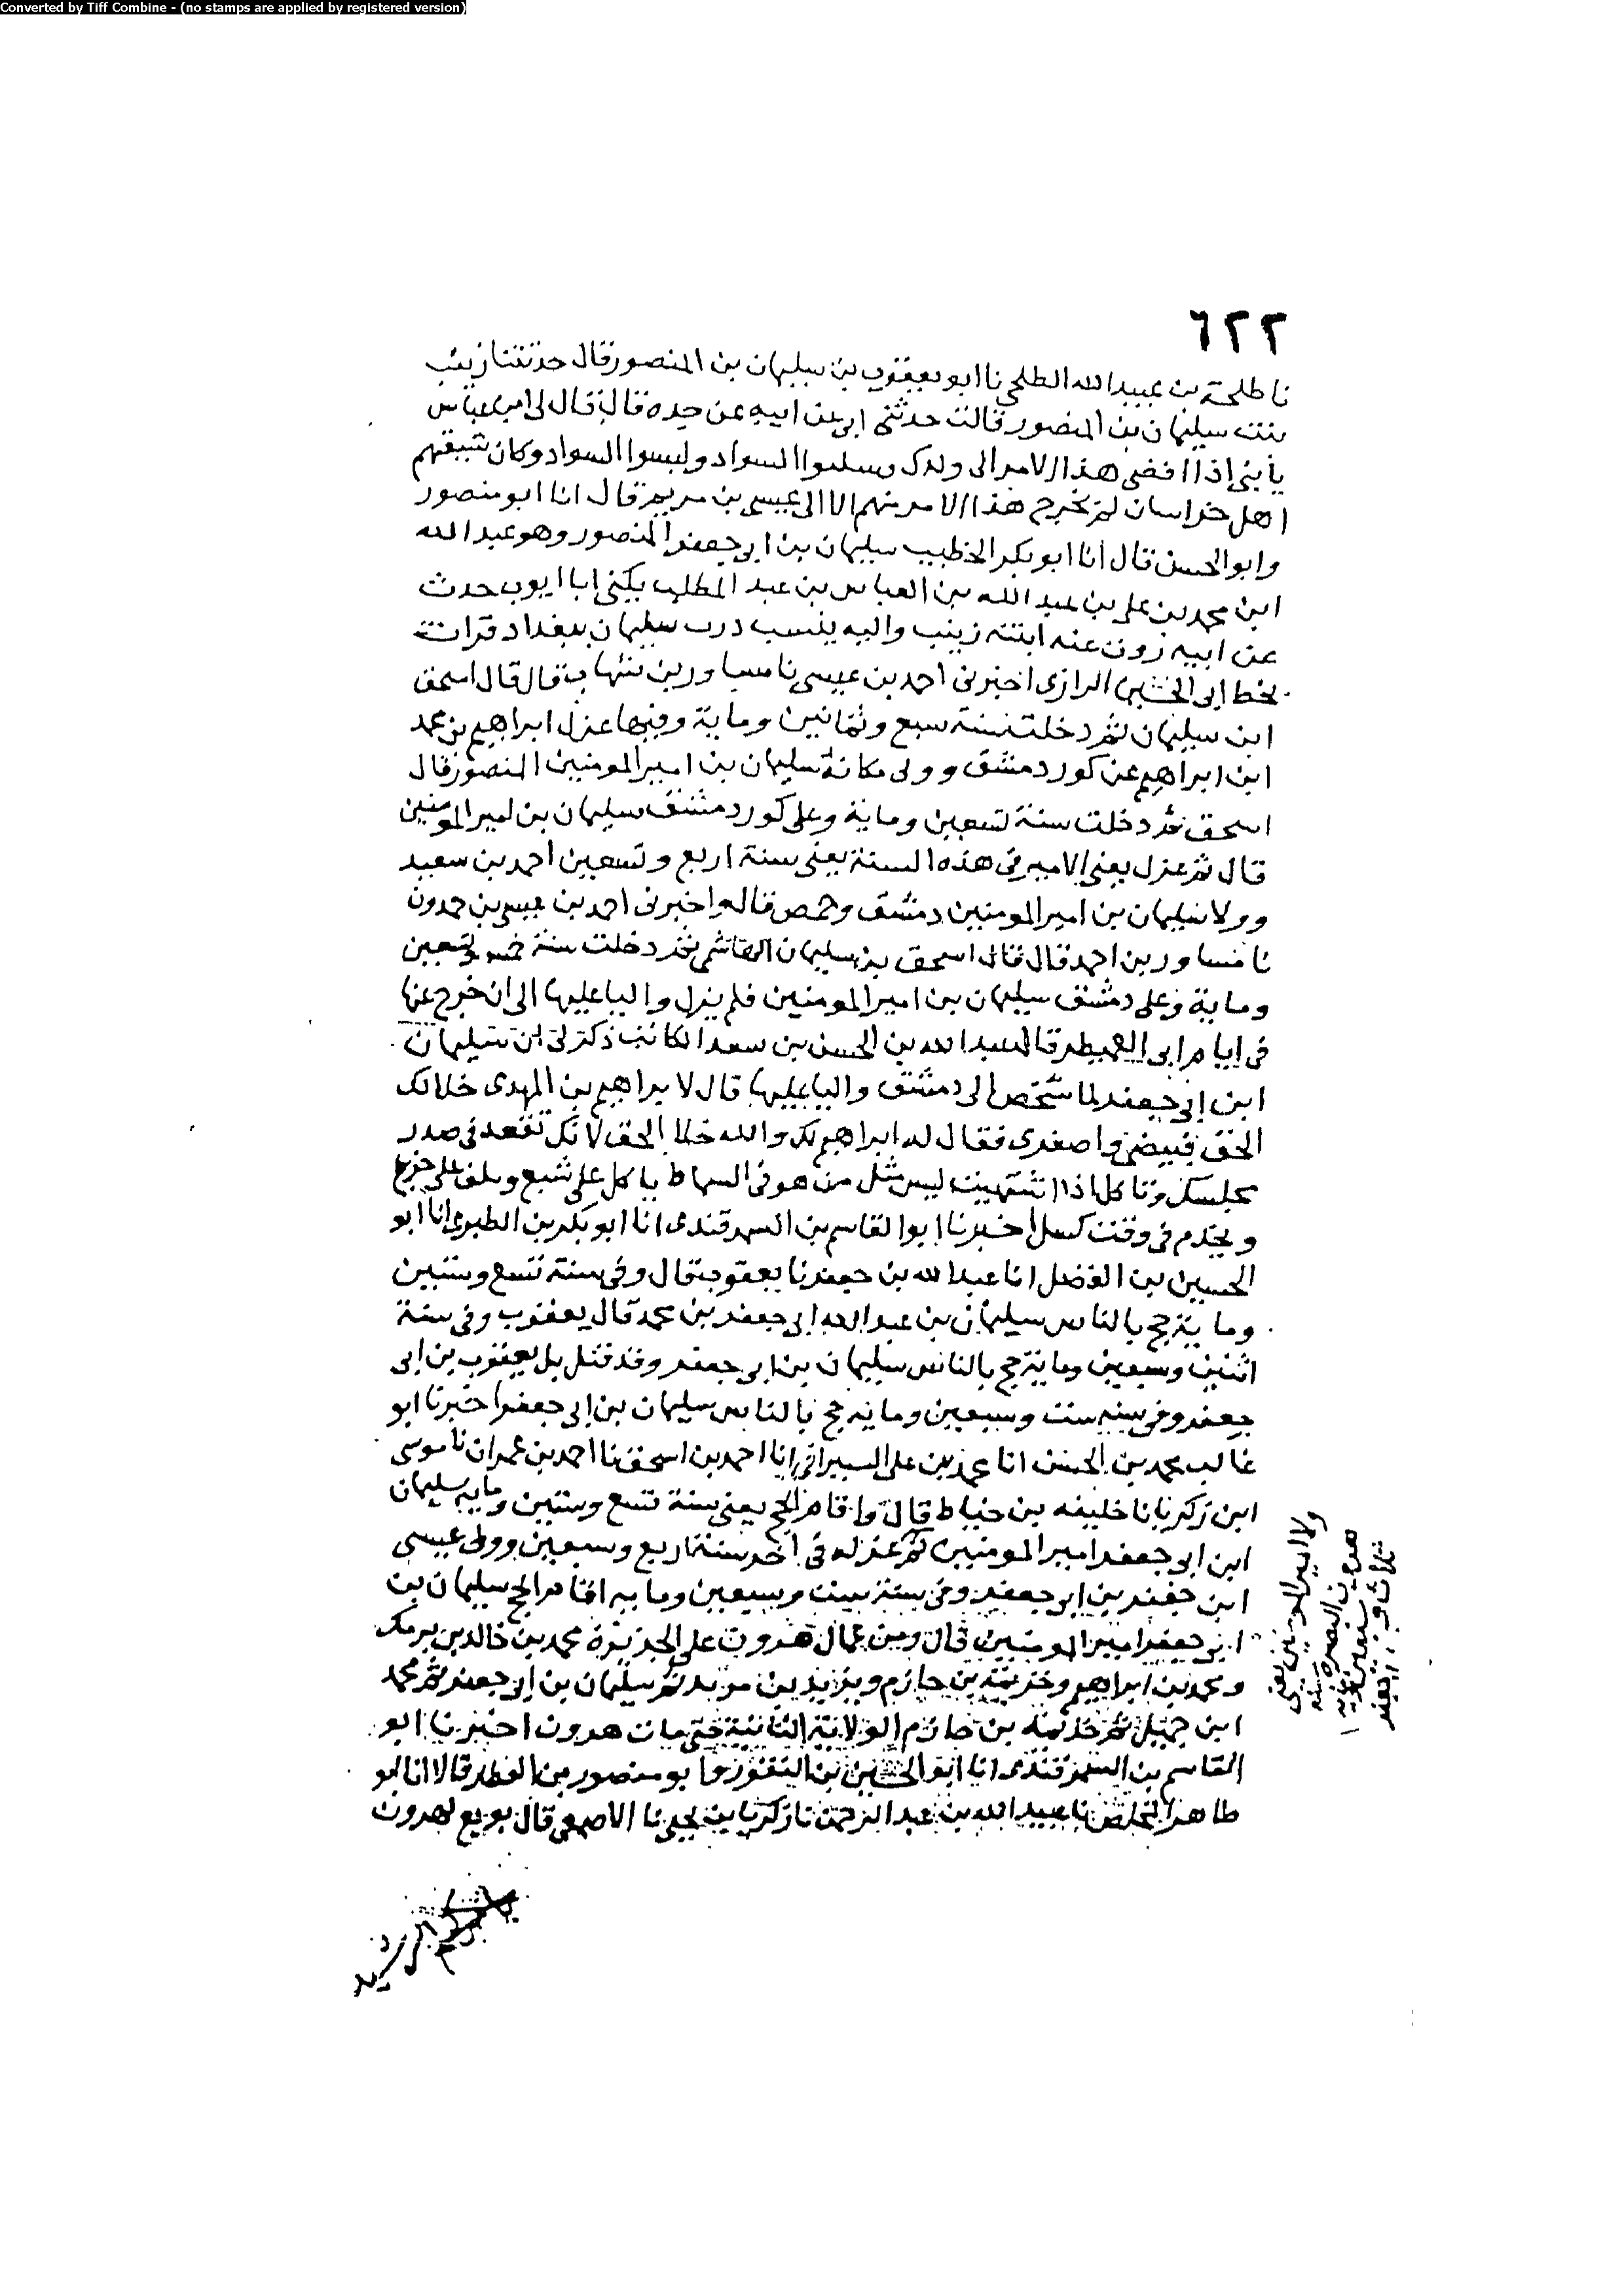 Converted by Tiff Combine - (no stamps are applied by registered version)
٦٢٢
نا طلحة بن عبيد الله الطلحي نا ابو يعقوب بن سليمان بن المنصور قال حدثتنا زينب
بنت سليمان بن المنصور قالت حدثني ابي عن ابيه عن جده قال قال لي ابن عباس
يا بني اذا افضى هذا الامر الى ولدك وسلبوا السواد ولبسوا السواد وكان شيعتهم
اهل خراسان لم يخرج هذا الامر منهم الا الى عيسى بن مريم قال انا ابو منصور
وابو الحسن قال انا ابو بكر الخطيب سليمان بن ابي جعفر المنصور وهو عبد الله
ابن محمد بن علي بن عبد الله بن العباس بن عبد المطلب يكنى ابا ايوب حدث
عن ابيه روت عنه ابنته زينب واليه ينسب درب سليمان ببغداد قرات
بخط ابي الحسين الرازي اخبرني احمد بن عيسى نا مساور بن شهاب قال قال اسحق
ابن سليمان ثم دخلت سنة سبع وثمانين وماية وفيها عزل ابراهيم بن محمد
ابن ابراهيم عن كور دمشق وولى مكانه سليمان بن امير المومنين المنصور قال
اسحق ثم دخلت سنة تسعين وماية وعلى كور دمشق سليمان بن امير المومنين
قال ثم عزل يعني الامير في هذه السنة يعني سنة اربع وتسعين احمد بن سعيد
وولا سليمان بن امير المومنين دمشق وحمص قال واخبرني احمد بن عيسى بن حمدون
نا مساور بن احمد قال قال اسحق بن سليمان الهاشمي ثم دخلت سنة خمس وتسعين
وماية وعلى دمشق سليمان بن امير المومنين فلم يزل واليا عليها الى ان خرج عنها
في ايام ابي العميطر قال عبد الله بن الحسن بن سعد الكاتب ذكر لي ان سليمان
ابن ابي جعفر لما شخص الى دمشق واليا عليها قال لابراهيم بن المهدي خلا لك
الجو فبيضي واصفري فقال له ابراهيم لك والله خلا الجو لانك تقعد في صدر
مجلسك وتاكل اذا اشتهيت ليس مثل من هو في السماط ياكل على شبع
ويخدم في وقت كسل اخبرنا ابو القاسم بن السمرقندي انا ابو بكر بن الطبري انا ابو
الحسين بن الفضل انا عبد الله بن جعفر نا يعقوب قال وفي سنة تسع وستين
وماية حج بالناس سليمان بن عبد الله ابي جعفر بن محمد قال يعقوب وفي سنة
اثنين وسبعين وماية حج بالناس سليمان بن ابي جعفر وقد قيل بل يعقوب بن ابي
جعفر وفي سنه ست وسبعين ومايه حج بالناس سليمان بن ابي جعفر اخبرنا ابو
غالب محمد بن الحسن انا محمد بن علي السيرافي انا احمد بن اسحق نا احمد بن عمران نا موسى
ابن زكريا نا خليفه بن خياط قال واقام الحج يعني سنة تسع وستين ومايه سليمان
ابن ابي جعفر امير المومنين ثم عزله في اخر سنة اربع وسبعين وولى عيسى
ابن جعفر بن ابي جعفر وفي سنة ست وسبعين ومايه اقام الحج سليمان بن
ابي جعفر امير المومنين قال ومن عمال هرون على الجزيرة محمد بن خالد بن برمك
ومحمد بن ابراهيم وخزيمة بن حازم ويزيد بن مزيد ثم سليمان بن ابي جعفر ثم محمد
ابن جميل ثم خزيمه بن خازم الولاية الثانية حتى مات هرون اخبرنا ابو
القاسم بن السمرقندي انا ابو الحسين بن النقور وابو منصور بن العطار قالا انا ابو
طاهر المخلص نا عبيد الله بن عبد الرحمن نا زكريا بن يحيى نا الاصمعي قال بويع لهرون
ولا امير المومنين يعني
هرون البصرة سنة